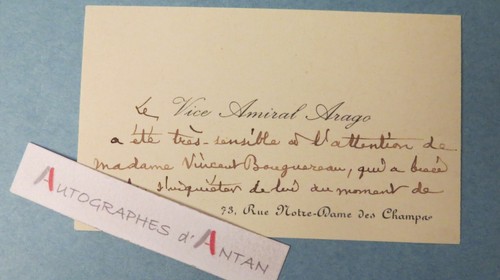 Le Vice Amiral Arago
a été très-sensible à l'attention de
madame Vincent Bouguereau, qui a
s'inquiéter de lui au moment de
73, Rue Notre-Dame des Champs
AUTOGRAPHES d'ANTAN